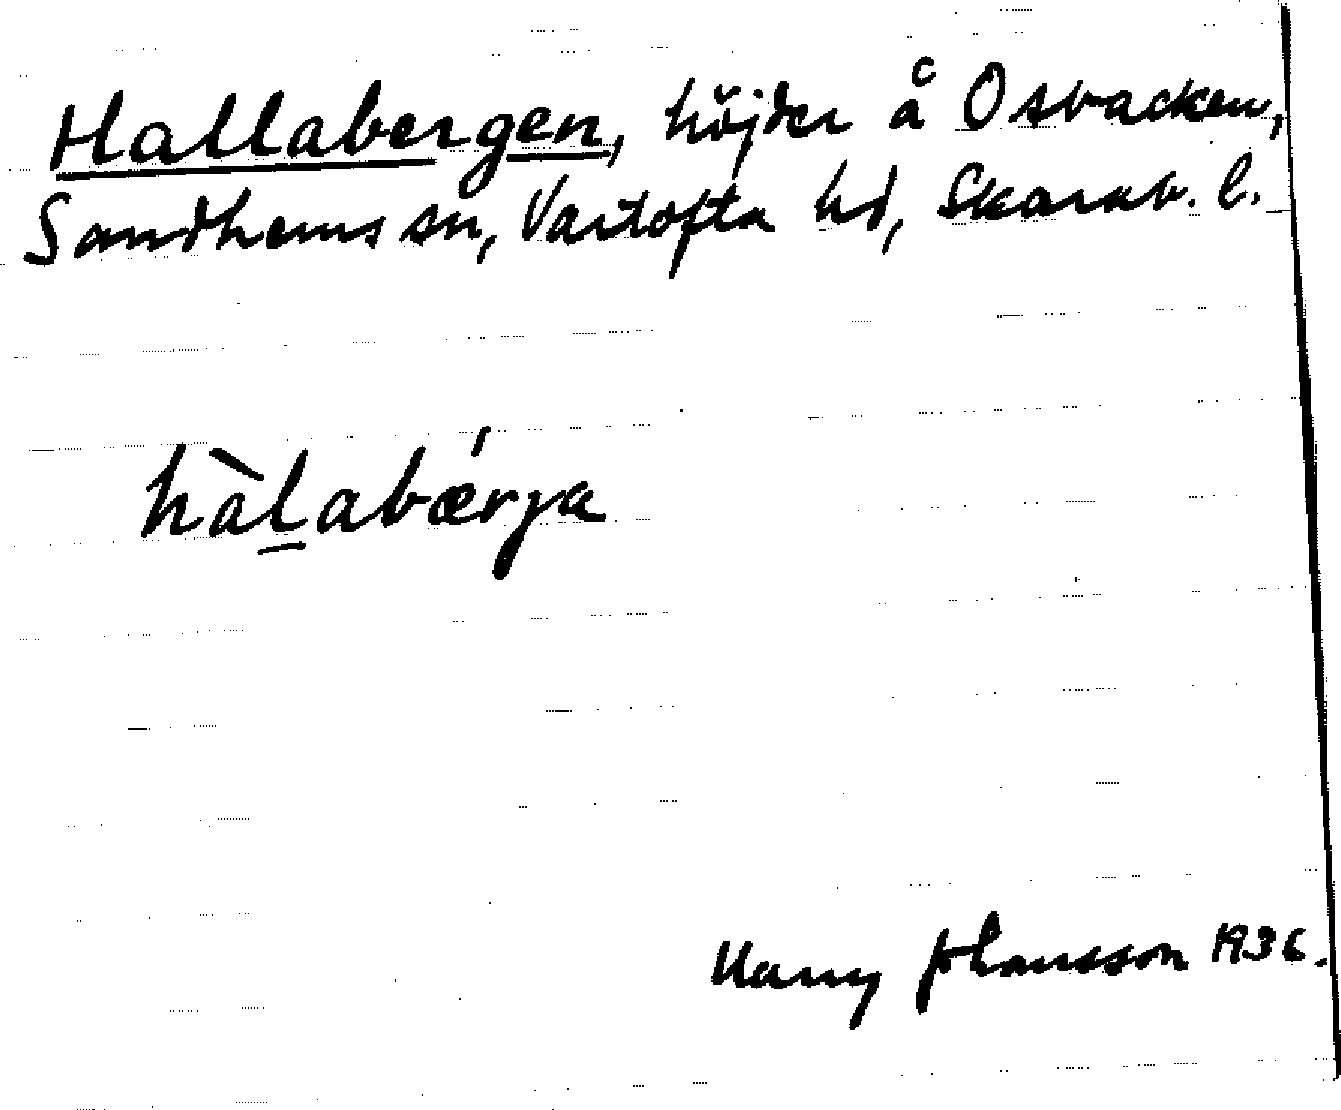 Hallabergen, höjder å Osbacken,
Sandhems sn, Vartofta hd, Skarab. l.
hàl̠abǽrja
Harry Johansson 1936.